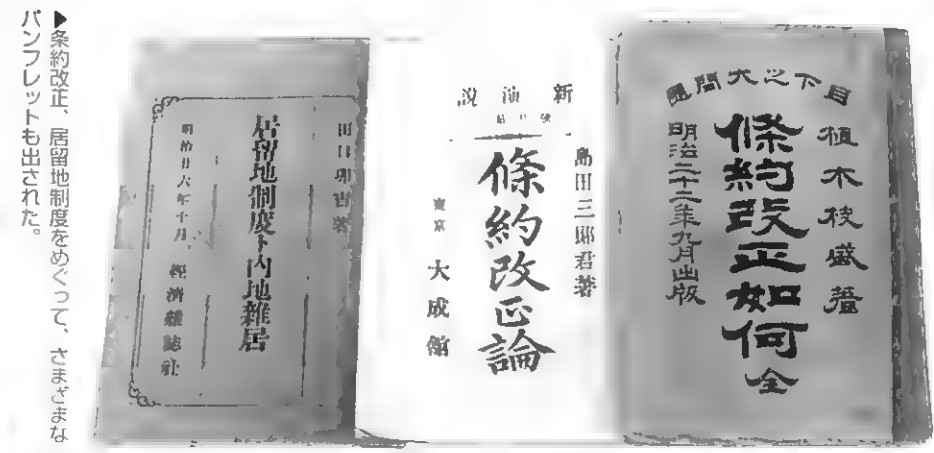 目下之大問題
植木枝盛著
條約改正如何 全
明治二十二年九月出版
新演說
島田三郎君著
條約改正論
東京 大成館
田口卯吉著
居留地制度ト内地雑居
明治廿六年十月
經濟雜誌社
▶条約改正、居留地制度をめぐって、さまざまな
パンフレットも出された。